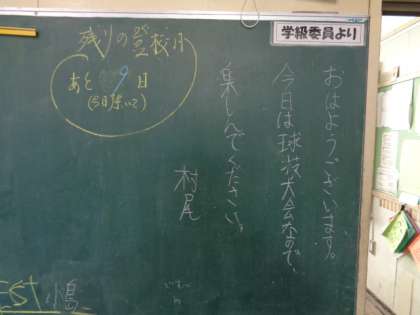 学級委員より
おはようございます。
今日は球技大会なので、
楽しんでください。
村尾
残りの登校日
あと9日
(今日除いて)
EST 小島